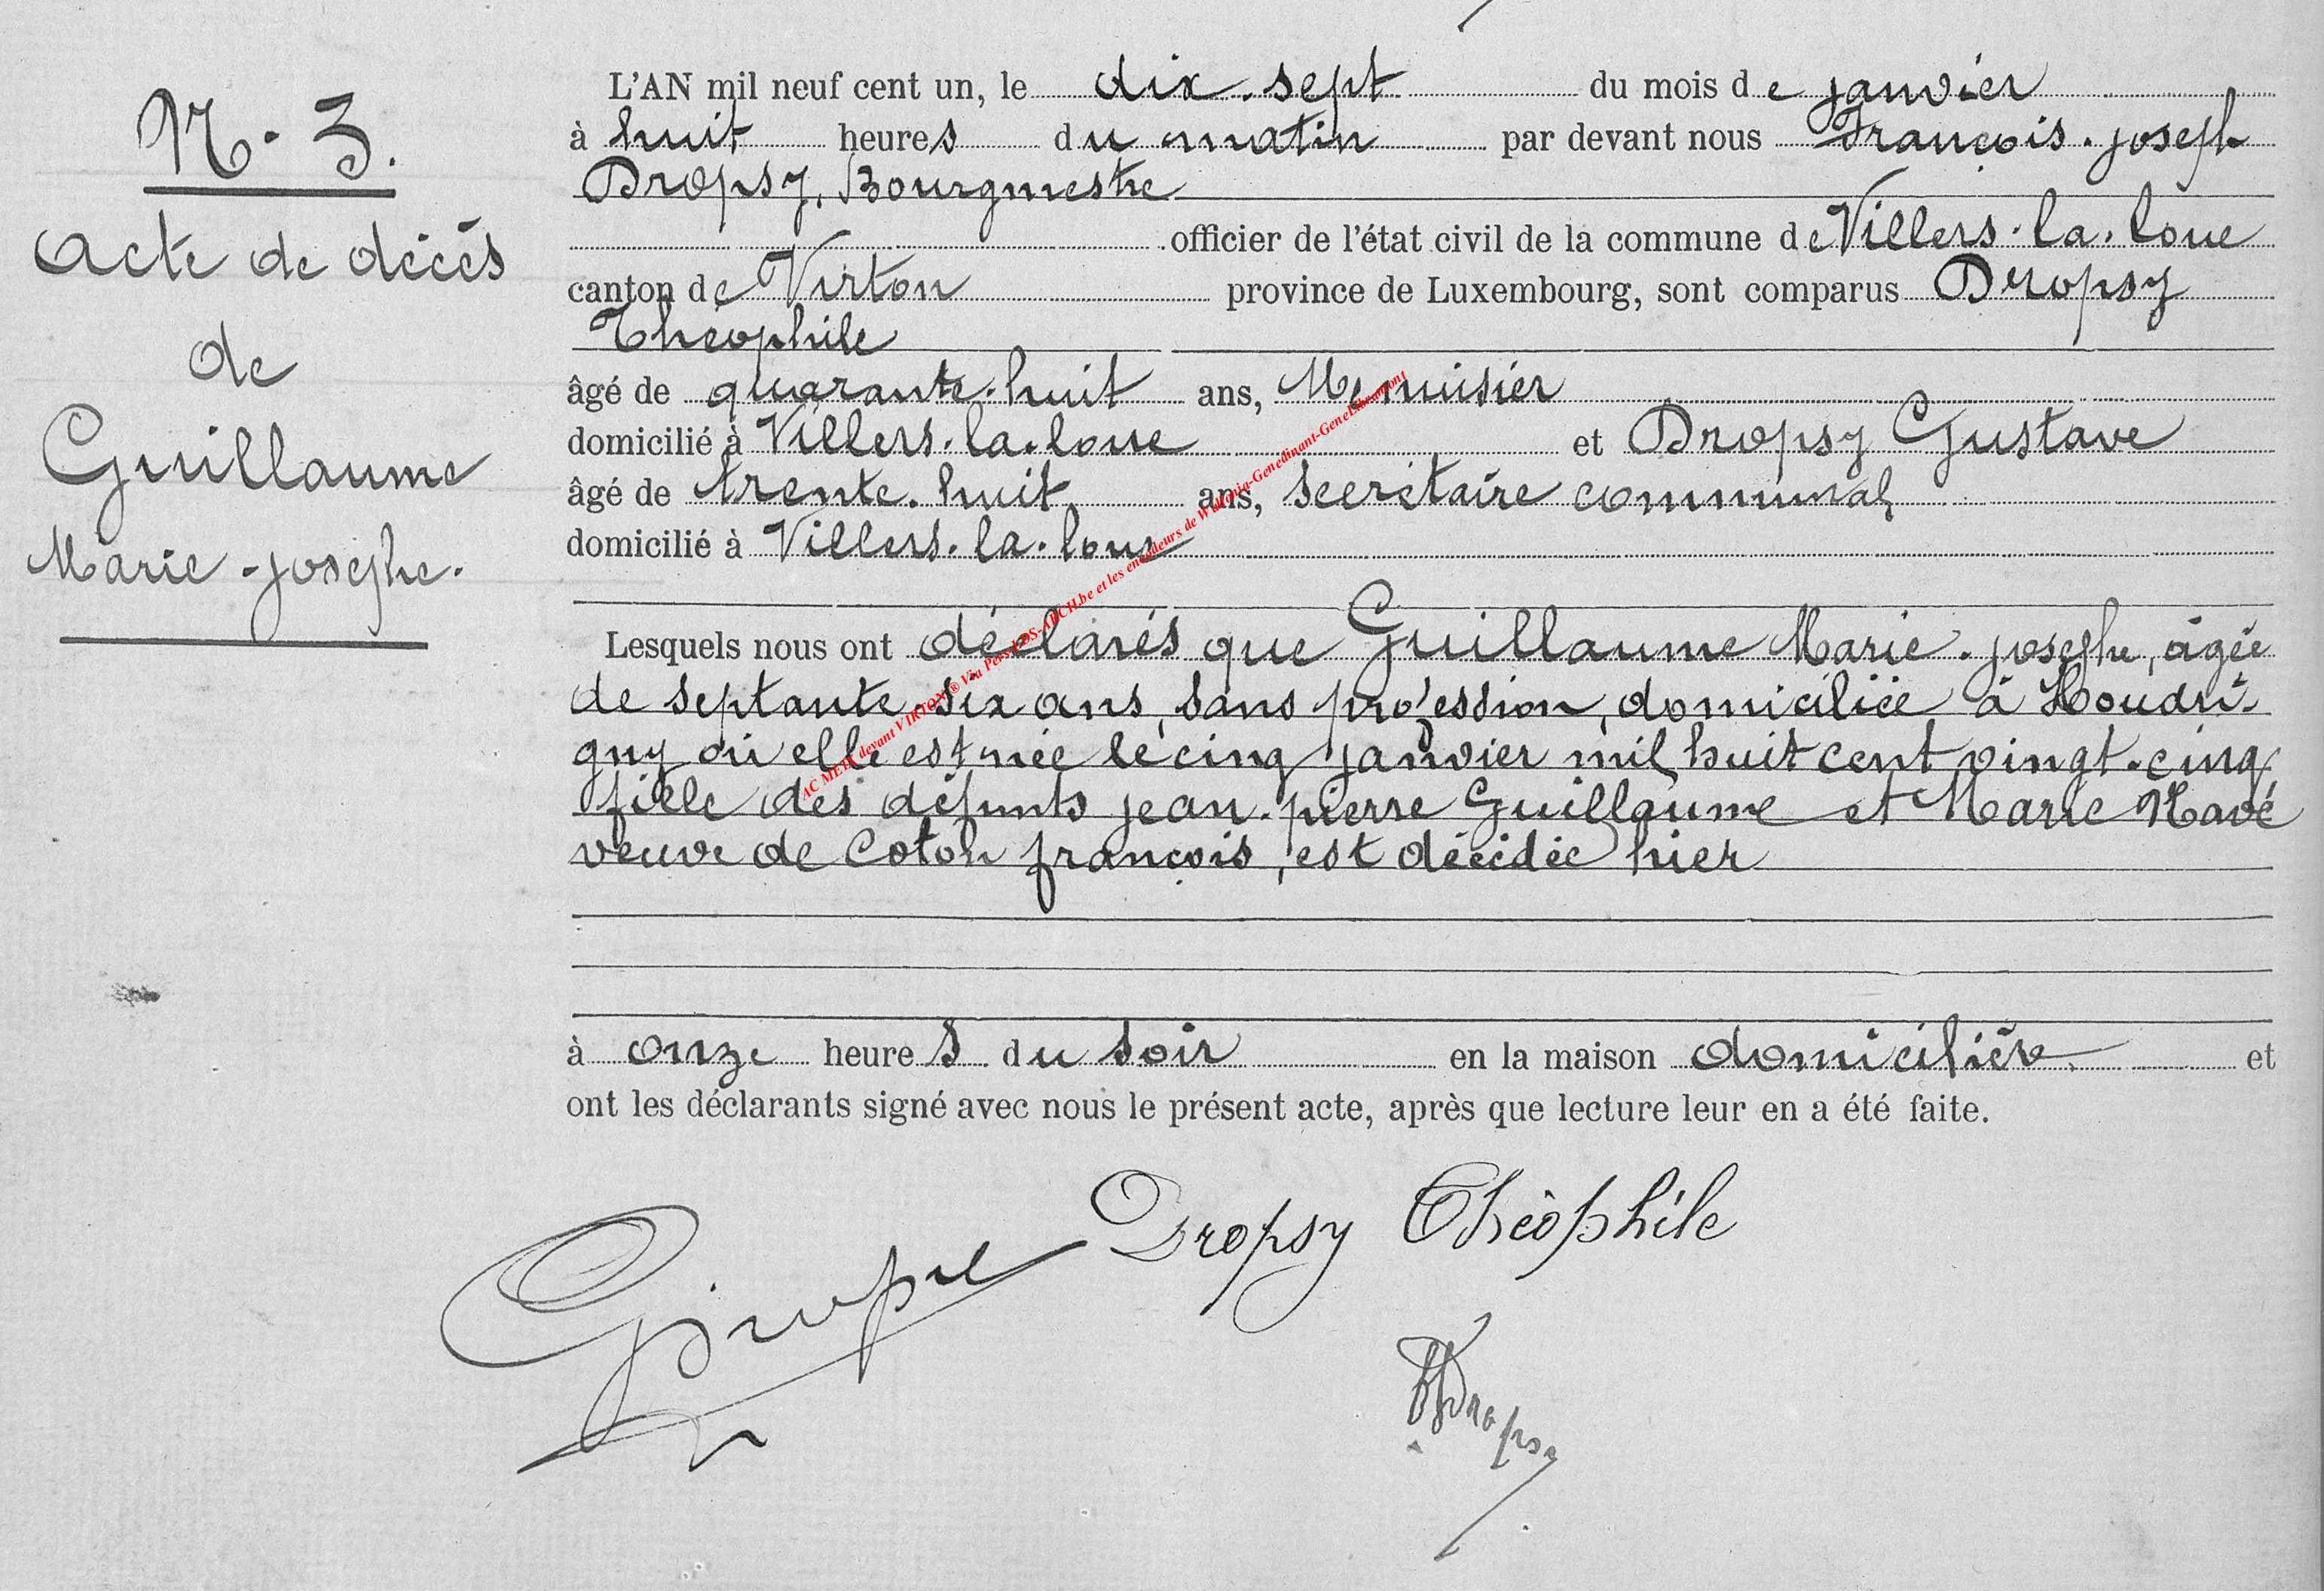 N. 3.
Acte de décès
de
Guillaume
Marie-josephe.
L'AN mil neuf cent un, le dix-sept du mois de janvier
à huit heures du matin par devant nous François-joseph
Dropsy, Bourgmestre
officier de l'état civil de la commune de Villers-la-loue
canton de Virton province de Luxembourg, sont comparus Dropsy
Théophile
âgé de quarante-huit ans, Menuisier
domicilié à Villers-la-loue et Dropsy Gustave
âgé de trente-huit ans, secrétaire communal
domicilié à Villers-la-loue
Lesquels nous ont déclarés que Guillaume Marie-josephe, âgée
de septante-six ans, sans profession, domiciliée à Houdri-
gny où elle est née le cinq janvier mil huit cent vingt-cinq
fille des défunts jean-pierre Guillaume et Marie Havé
veuve de Coton françois, est décédée hier
à onze heures du soir en la maison domicilière et
ont les déclarants signé avec nous le présent acte, après que lecture leur en a été faite.
Dropsy Théophile
Dropsy
AC METX devant VIRTON ® Via Pers LDS-ARCH.be et les encodeurs de Wallonia-Genedinant-GeneLibramont